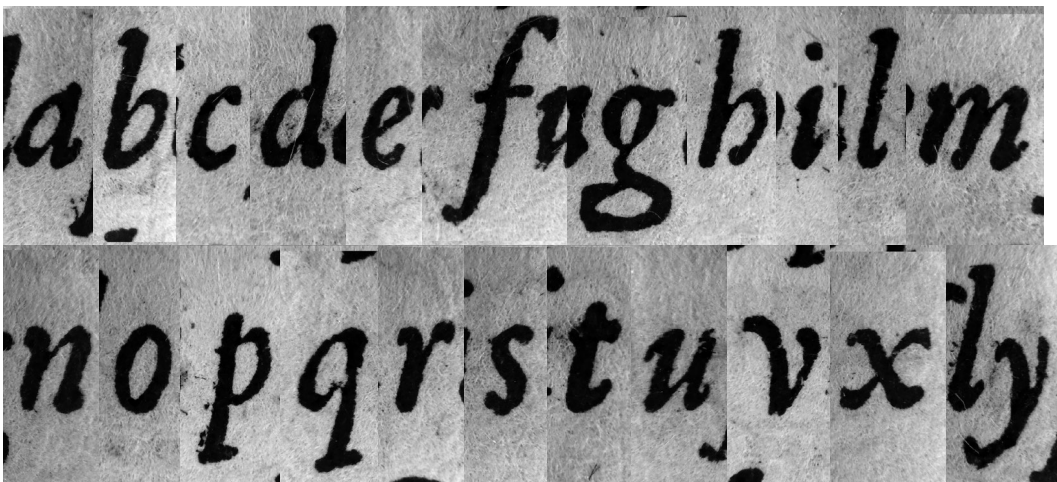 a b c d e f g h i l m
n o p q r s t u v x y